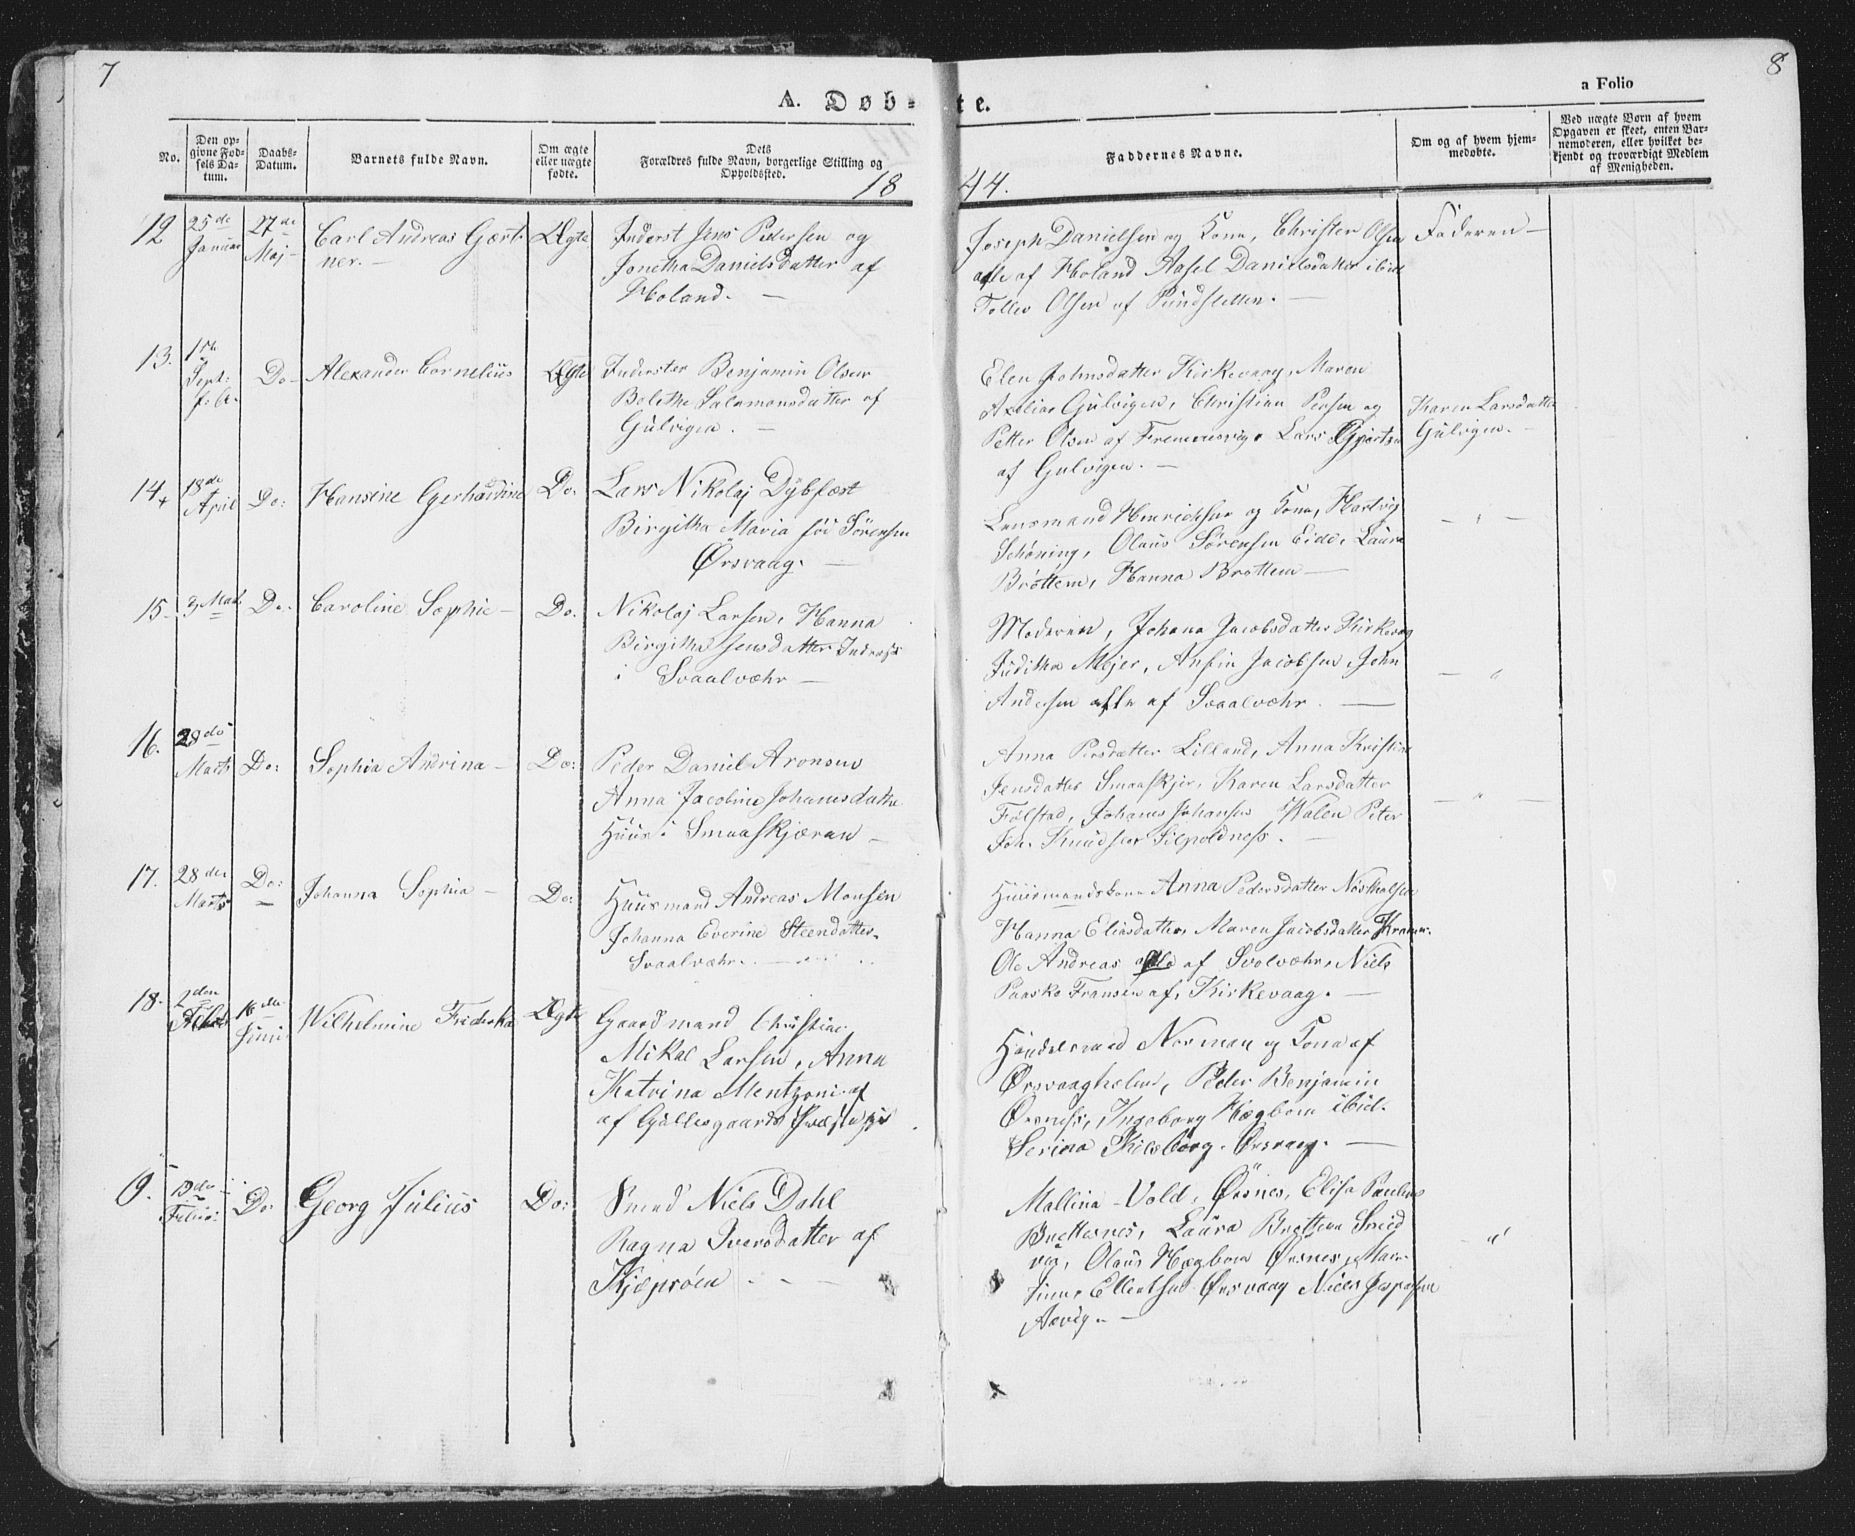 7
8
A. Døb=te.
a Folio
No.
Den op=
givne Fød=
sels Da=
tum.
Daabs=
Datum.
Barnets fulde Navn.
Om ægte
eller uægte
fødte.
Dets
Forældres fulde Navn, borgerlige Stilling og
Opholdssted.
Faddernes Navne.
Om og af hvem hjem=
medøbte.
Ved uægte Børn af hvem
Opgaven er skeet, enten Bar=
nemoderen, eller hvilket be=
kjendt og troværdigt Medlem
af Menigheden.
1844.
12
25de
Januar
27de
Maj
Carl Andreas Gært-
ner.
Ægte
Inderst Jens Pedersen og
Jonetha Danielsdatter af
Holand.
Joseph Danielsen og Kone, Christer Olsen
alle af Holand Aasel Danielsdatter ibid
Tolles Olsen af Pundsletten.
Faderen
13.
1ste
Sept.
f. A.
Do
Alexander Cornelius
Ægte
Inderster Benjamin Olsen
Bolethe Salamonsdatter af
Gulvigen.
Elen Johnsdatter Kirkevaag, Maren
Gulvigen, Christian Persen og
Petter Olsen af Lars
af Gulvigen.
Karen Larsdatter
Gulvigen.
14
18de
April
Do:
Hansine Gerhardine
Do:
Lars Nikolaj Dybfest
Birgitha Maria fød Sörensen
Ørsvaag.
Lensmand Henrichsen og Kone, Hartvig
Schöning, Olaus Sörensen Eide, Laura
Bröttem, Hanna Brottem
15.
3 Mai
Do.
Caroline Sophie
Do.
Nikolaj Larsen, Hanna
Birgitha Jensdatter
i Svaalvæhr
Moderen, Johana Jacobsdatter Kirkevaag
Juditha Mejer, Ansin Jacobsen, John
Andersen alle af Svaalvæhr.
16.
28de
Marts
Do:
Sophia Andrina
Do:
Peder Daniel Aronsen
Anna Jacobine Johanesdatter
Huus i Smaaskjæran
Anna Persdatter Lilland, Anna Kristine
Jensdatter Smaaskjer, Karen Larsdatter
Følstad, Johanes Johansen Walen Peter
Joh. Knudsen
17.
28de
Marts
Do:
Johanna Sophia
Do:
Huusmand Andreas Monsen
Johanna Everine Steendatter.
Svaalvæhr.
Huusmandskone Anna Pedersdatter
Hanna Eliasdatter, Maren Jacobsdatter
Ole Andreas alle af Svolvæhr, Niels
Paaske Fransen af Kirkevaag.
18.
2den
16de
Juni
Wilhelmine Frederika
Ægte
Gaardmand Christian
Mikal Larsen, Anna
Katrina Mentzoni af
af Gullesgaards
Handelsmand Norman og Kone af
Ørsvaagholm, Peder Benjamin
Örsness, Ingeborg Hagbom ibid.
Serina Kilsborg, Ørsvaag.
9.
Februar:
Do
Georg Julius
Do:
Smed Niels Dahl
Ragna Iversdatter af
Kjeprøen
Mallina Vold, Örsnes, Elisa Paulus
Brettesnes, Laura Brottem Smed
vig, Olaus Hagbom Örsnes, Mar-
Ellertsen Ørsvaag Niels Jespersen
Aavig.